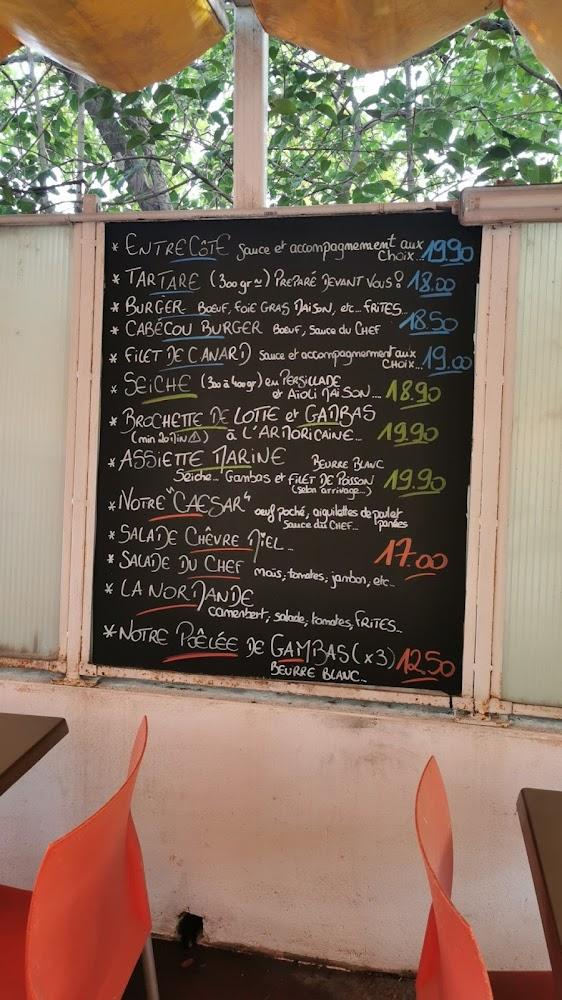 * ENTRECÔTE Sauce et accompagnement aux
Choix... 19.90
* TARTARE (300 gr ≃) PREPARÉ DEVANT VOUS! 18.00
* BURGER BOEUF, FOIE GRAS MAISON, etc... FRITES...
* CABÉCOU BURGER BOEUF, Sauce du CHEF 18.50
* FILET DE CANARD Sauce et accompagnement aux
CHOIX... 19.00
* SEICHE (300 à 400 gr) en PERSILLADE
et AÏOLI MAISON... 18.90
* BROCHETTE DE LOTTE et GAMBAS
(min 20 Min ⚠) à L'ARMORICAINE... 19.90
* ASSIETTE MARINE BEURRE BLANC
Seiche... Gambas et FILET DE POISSON 19.90
(selon arrivage...)
* NOTRE "CAESAR" oeuf poché, aiguilettes de poulet
panées
Sauce du CHEF...
* SALADE CHÈVRE MIEL...
17.00
* SALADE DU CHEF maïs, tomates, jambon, etc...
* LA NORMANDE
camembert, salade, tomates, FRITES...
* NOTRE POÊLÉE DE GAMBAS (x3) 12.50
BEURRE BLANC...